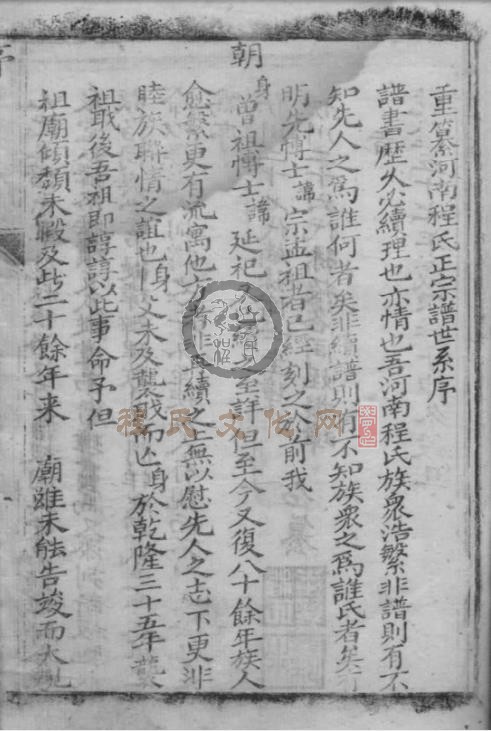 重纂河南程氏正宗譜世系序
譜書歷久必續理也亦情也吾河南程氏族眾浩繁非譜則有不
知先人之爲誰何者矣非續譜則有不知族眾之爲誰氏者矣
明先博士諱宗孟祖者已經刻之於前我
朝
身曾祖博士諱延祀至詳但至今又復八十餘年族人
愈繁更有流寓他方者非再續之上無以慰先人之志下更非
睦族聯情之誼也身父未及襲職而亡身於乾隆三十五年襲
祖職後吾祖即諄諄以此事命予但
祖廟傾頽未暇及此二十餘年来 廟雖未能告竣而大
程氏文化网